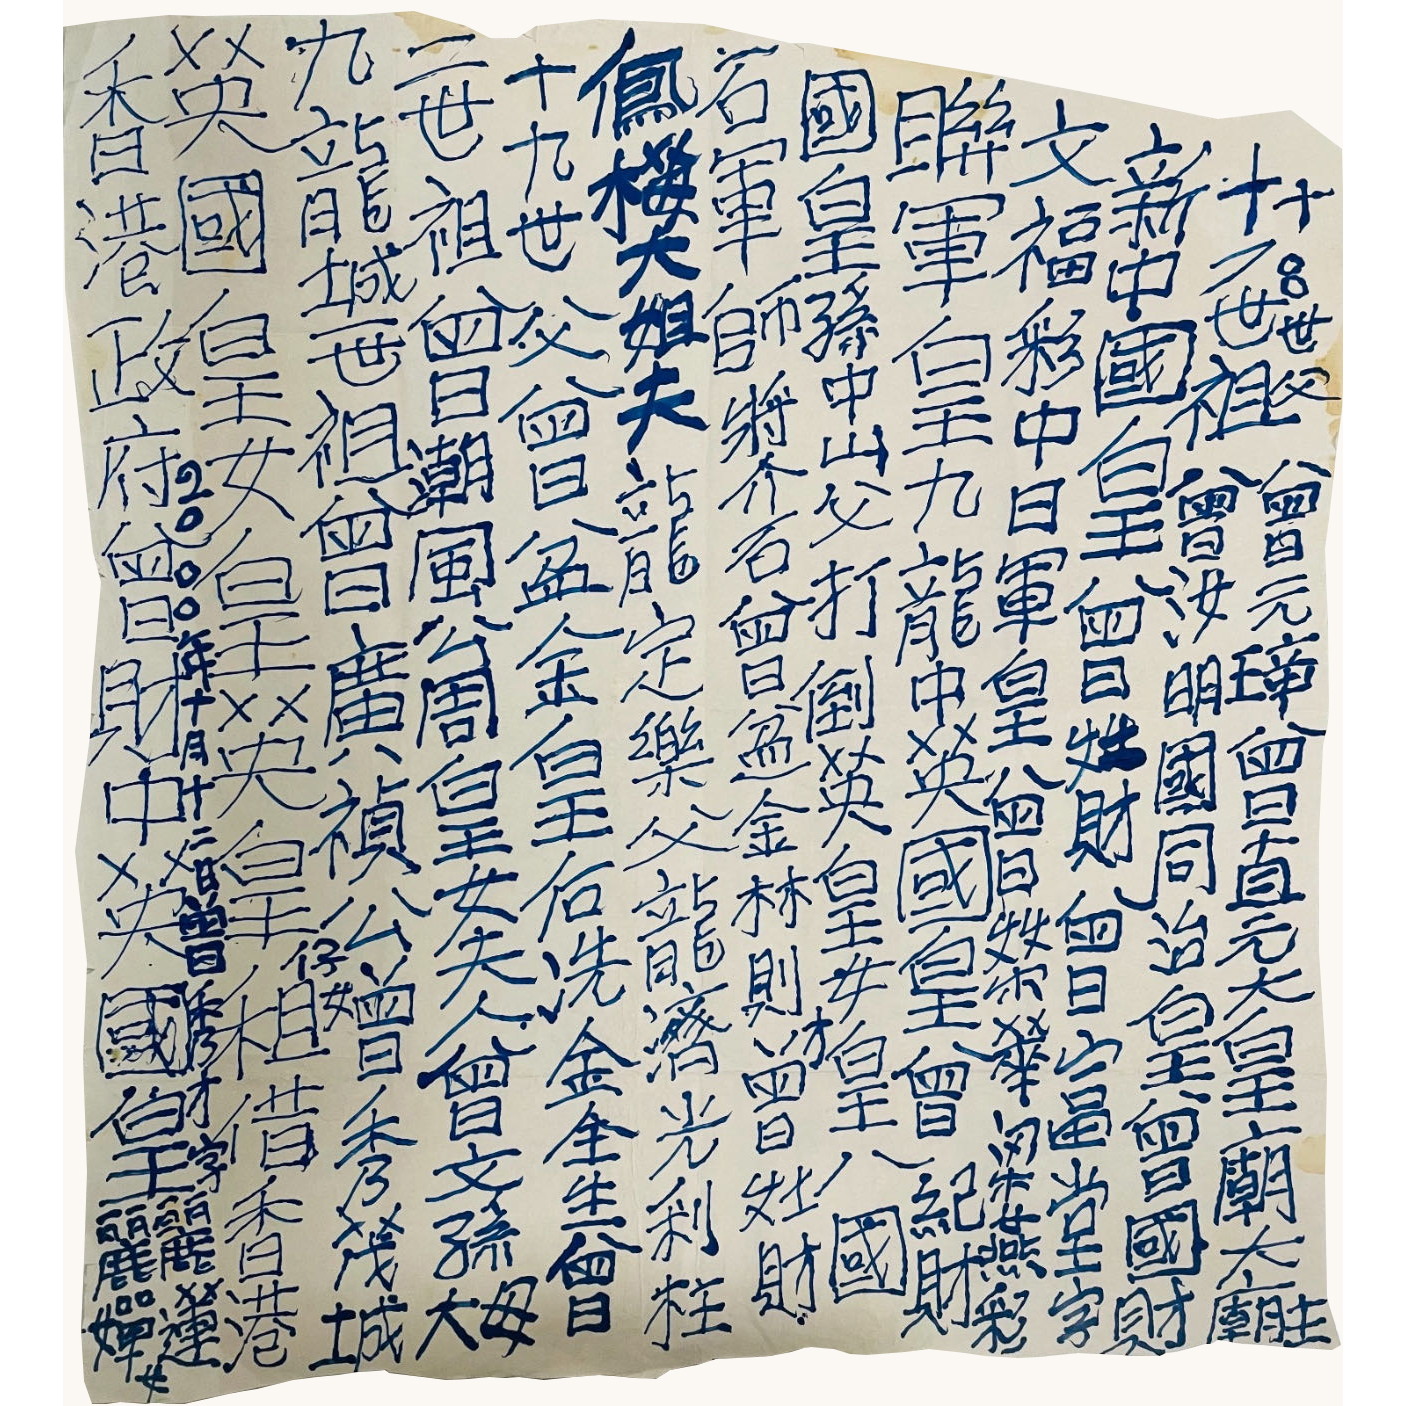 十八世父曾元璋曾日直元大皇廟大廟
十八世祖曾汝明國同治皇曾日國財
新中國皇曾日財曾日富堂字
文福彩中日軍皇曾日榮華梁燕彩
聯軍皇九龍中英國皇曾日紀財
國皇孫中山父打倒英皇女皇八國
石軍師自將介石曾日盆金林則才曾日財
鳳樓大姐夫龍定樂父龍濟光利柱
十九世父曾日盆金皇后洗金全生曾日
二世祖曾日潮風公周皇女夫人曾日文孫大母
九龍城一世祖曾日廣八禎公仔女曾日秀茂城
英國皇女皇英皇祖借香港
2000年十月十二日曾日秀才字麗蓮
香港政府曾日財中英國皇麗嬋女